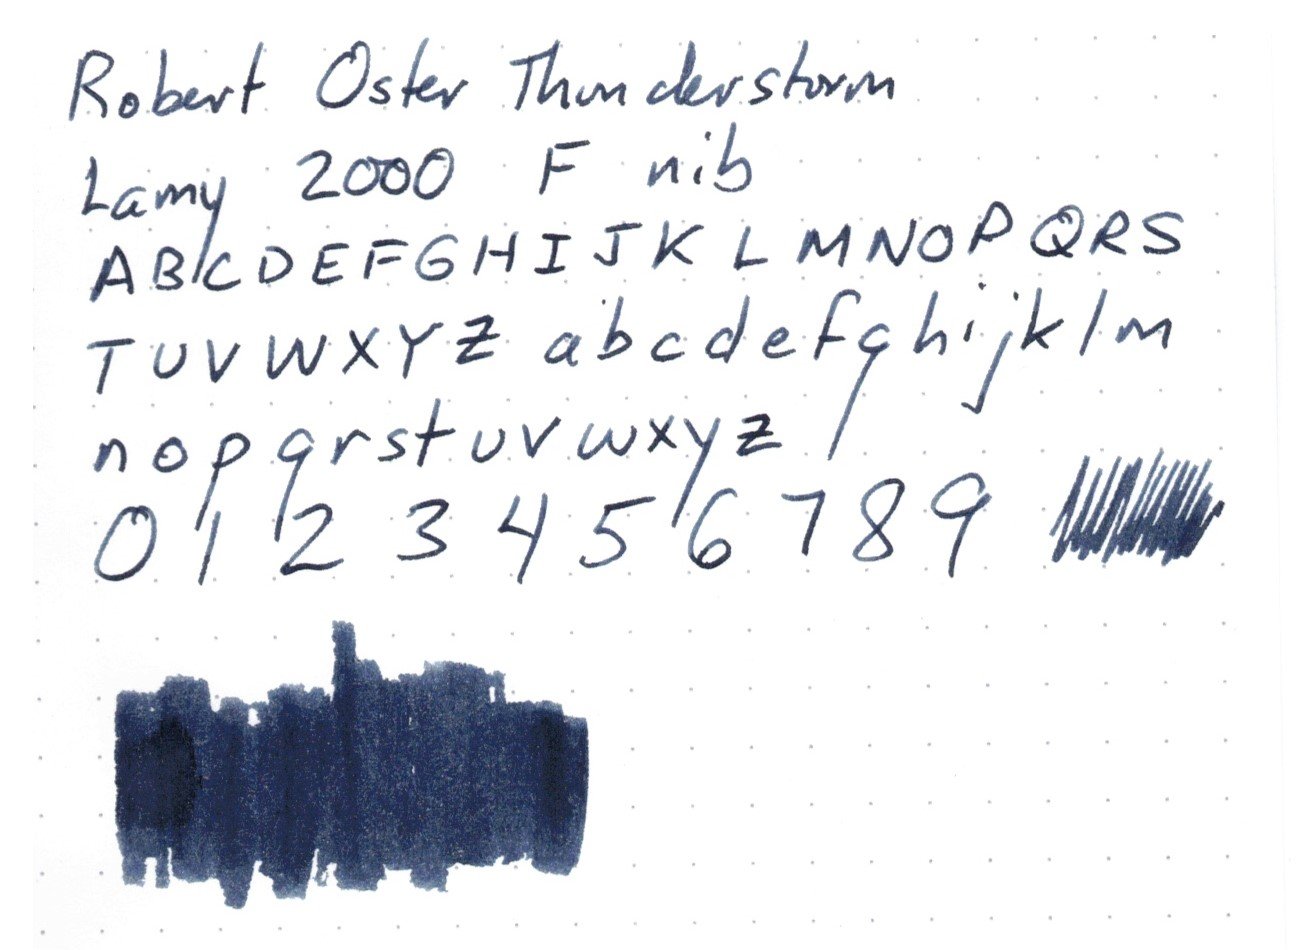 Robert Oster Thunderstorm
Lamy 2000 F nib
A B C D E F G H I J K L M N O P Q R S
T U V W X Y Z a b c d e f g h i j k l m
n o p q r s t u v w x y z
0 1 2 3 4 5 6 7 8 9